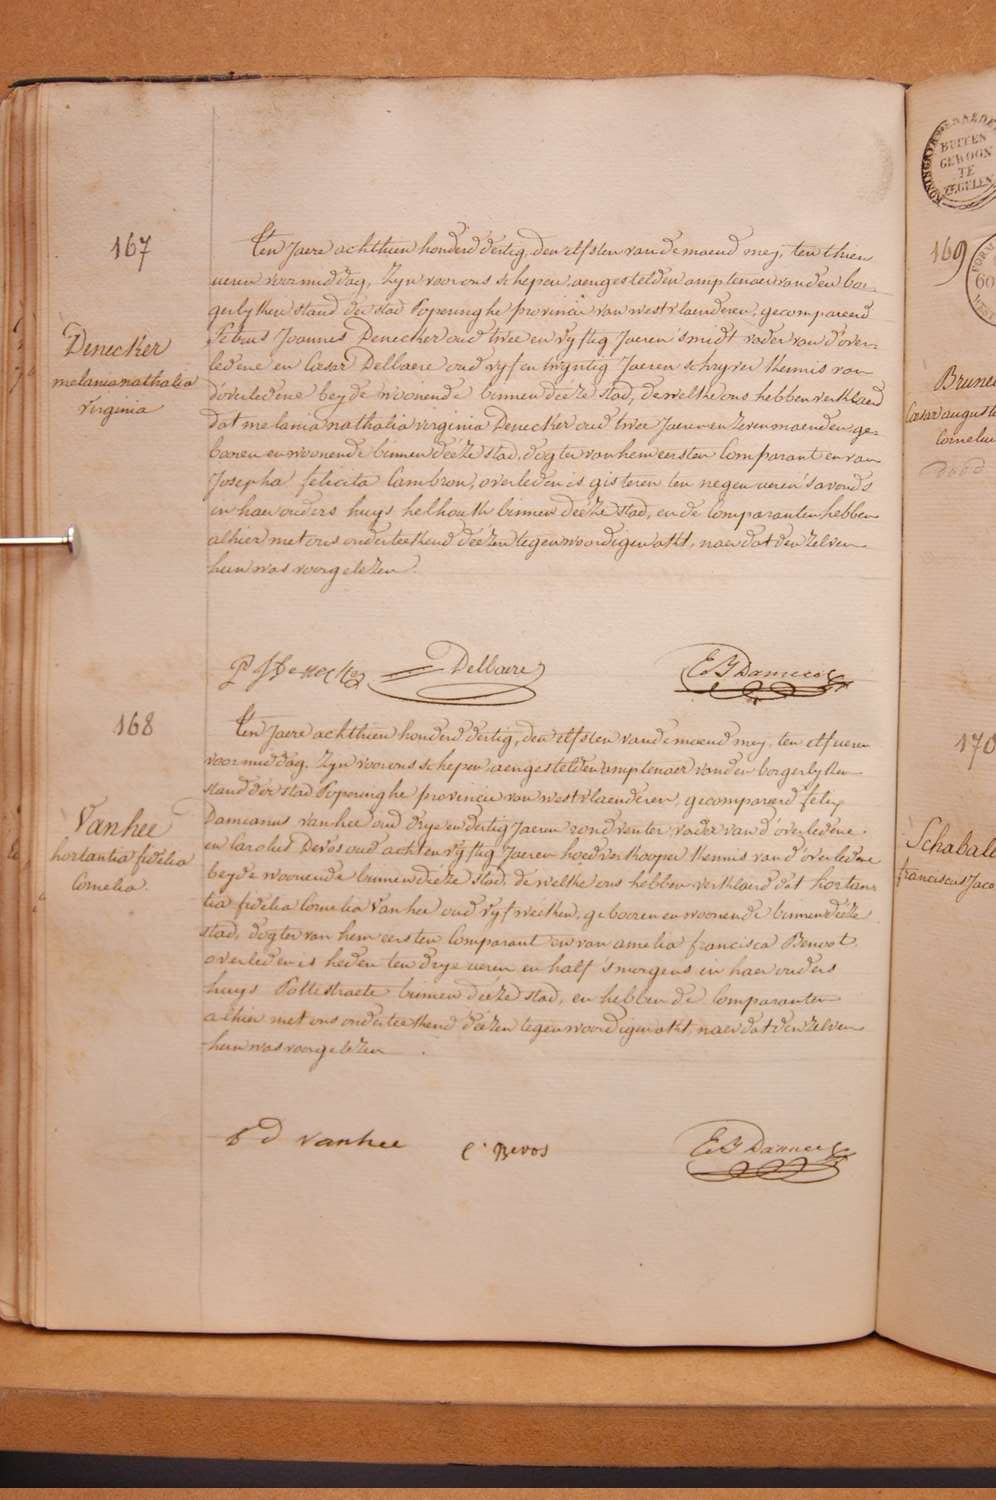 167
Denecker
melania nathalia
virginia
Ten Jaere achthien honderd dertig, den elfsten van de maend mey, ten thien
ueren voormiddag, Zyn voor ons schepen, aengestelden amptenaer van den bor-
gerlyken stand der stad Poperinghe provincie van westvlaenderen, gecompareerd
Petrus Joannes Denecker oud twee en vyftig Jaeren smidt vader van d'over-
ledene en Cæsar Delbaere oud vyf en twyntig Jaeren schryver Kennis van
d'overledene beyde woonende binnen deéze stad, de welke ons hebben verklaerd
dat melania nathalia virginia Denecker oud twee Jaeren en zeven maenden ge-
booren en woonende binnen deéze stad, dogter van hem eersten Comparant en van
Josepha felicita Cambron, overleden is gisteren ten negen ueren 's avonds
in haer ouders huys helhouck binnen deéze stad, en de Comparanten hebben
alhier met ons onderteekend deézen tegenwoordigen akt, naer dat den zelven
hun was voorgelezen.
P J Denecker
Delbaere
168
Vanhee
hortantia fidelia
Cornelia.
Ten Jaere achthien honderd dertig, den elfsten van de maend mey, ten elf ueren
voormiddag, Zyn voor ons schepen, aengestelden amptenaer van den borgerlyken
stand der stad Poperinghe provincie van westvlaenderen, gecompareerd felix
Damianus vanhee oud drye en dertig Jaeren rond venter vader van d'overledene
en Carolus Devos oud acht en vyftig Jaeren hoedverkooper Kennis van d'overledene
beyde woonende binnen dieze stad, de welke ons hebben verklaerd dat hortan-
tia fidelia Cornelia Vanhee oud vyf weeken, gebooren en woonende binnen deéze
stad, dogter van hem eersten Comparant en van amelia francisca Benoot
overleden is heden ten drye ueren en half 's morgens in haer ouders
huys Pottestraete binnen deéze stad, en hebben de Comparanten
alhier met ons onderteekend deézen tegenwoordigen akt naer dat den zelven
hun was voorgelezen.
f d vanhee
C. Devos
BUITEN
GEWOON
TE
ZEGELEN
169
60
Cæsar august
170
franciscus Jaco